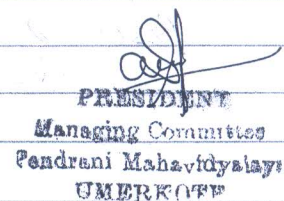 PRESIDENT
Managing Committee
Pendrani Mahavidyalaya
UMERKOTE